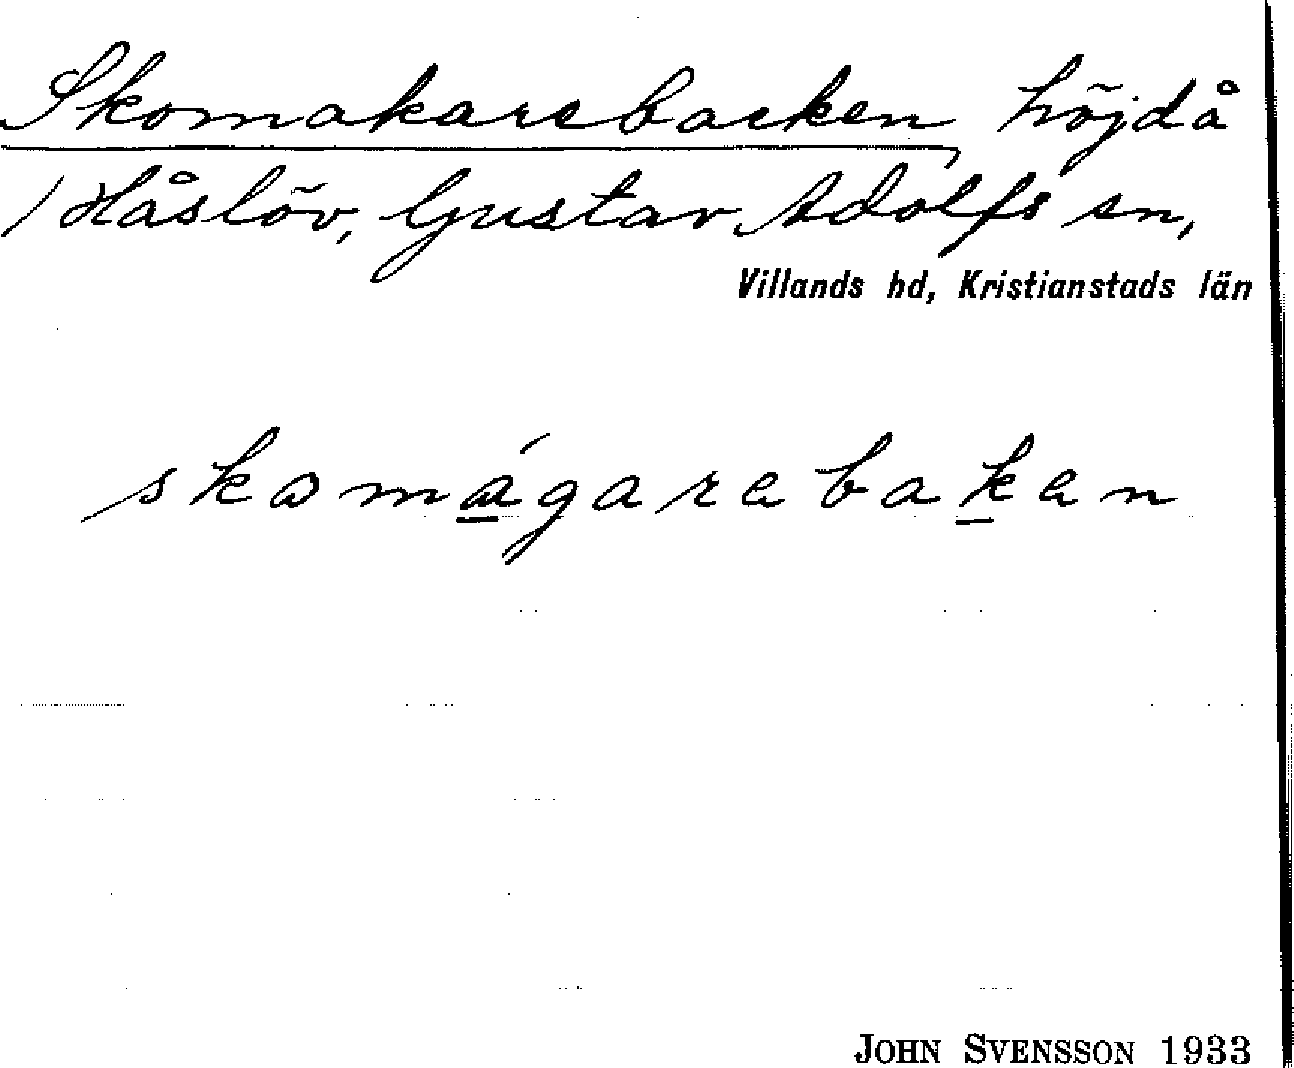 Skomakarebacken, höjd å
/ Håslöv, Gustav Adolfs sn,
Villands hd, Kristianstads län
skomágarebaken
JOHN SVENSSON 1933